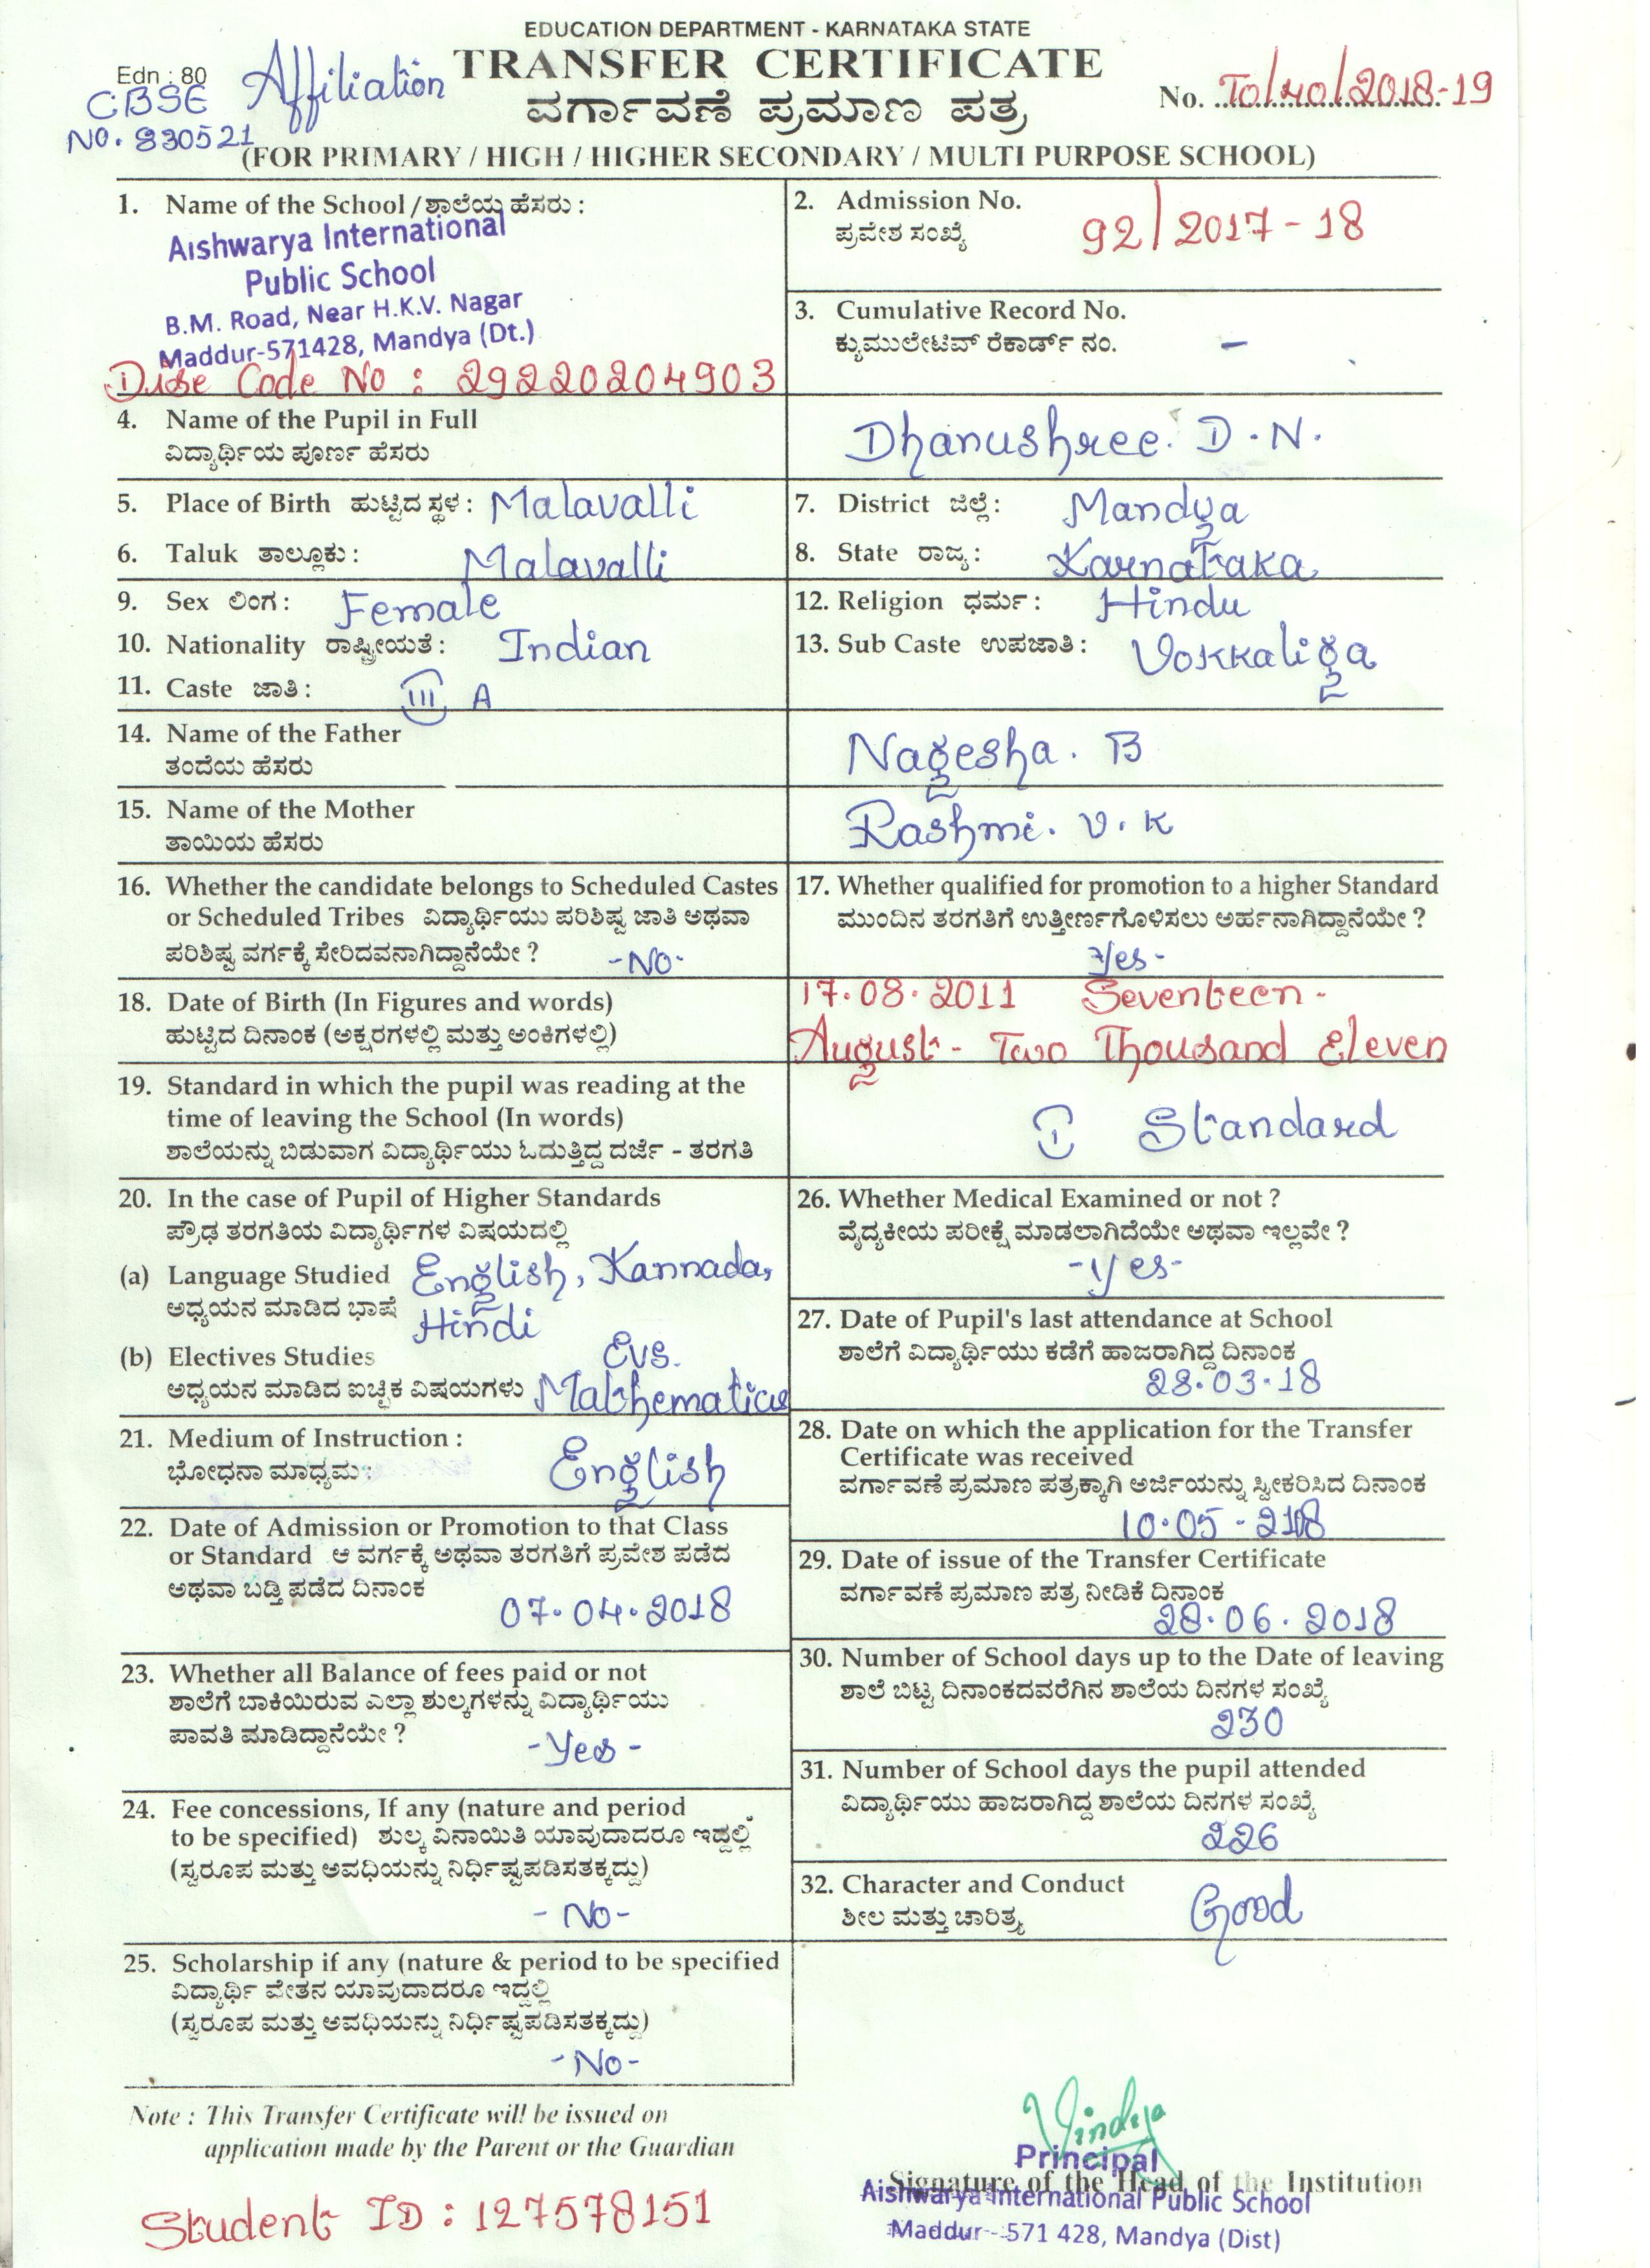 EDUCATION DEPARTMENT - KARNATAKA STATE
Edn : 80
CBSE Affiliation
NO. 830521
TRANSFER CERTIFICATE
ವರ್ಗಾವಣೆ ಪ್ರಮಾಣ ಪತ್ರ
No. T0/40/2018-19
(FOR PRIMARY / HIGH / HIGHER SECONDARY / MULTI PURPOSE SCHOOL)
1. Name of the School / ಶಾಲೆಯ ಹೆಸರು :
Aishwarya International
Public School
B.M. Road, Near H.K.V. Nagar
Maddur-571428, Mandya (Dt.)
Dise Code No : 29220204903
2. Admission No.
ಪ್ರವೇಶ ಸಂಖ್ಯೆ 92/2017-18
3. Cumulative Record No.
ಕ್ಯುಮುಲೇಟಿವ್ ರೆಕಾರ್ಡ್ ನಂ. -
4. Name of the Pupil in Full
ವಿದ್ಯಾರ್ಥಿಯ ಪೂರ್ಣ ಹೆಸರು
Dhanushree. D.N.
5. Place of Birth ಹುಟ್ಟಿದ ಸ್ಥಳ : Malavalli
6. Taluk ತಾಲ್ಲೂಕು : Malavalli
7. District ಜಿಲ್ಲೆ : Mandya
8. State ರಾಜ್ಯ : Karnataka
9. Sex ಲಿಂಗ : Female
10. Nationality ರಾಷ್ಟ್ರೀಯತೆ : Indian
11. Caste ಜಾತಿ : III A
12. Religion ಧರ್ಮ : Hindu
13. Sub Caste ಉಪಜಾತಿ : Vokkaliga
14. Name of the Father
ತಂದೆಯ ಹೆಸರು
Nagesha. B
15. Name of the Mother
ತಾಯಿಯ ಹೆಸರು
Rashmi. V. K
16. Whether the candidate belongs to Scheduled Castes
or Scheduled Tribes ವಿದ್ಯಾರ್ಥಿಯು ಪರಿಶಿಷ್ಟ ಜಾತಿ ಅಥವಾ
ಪರಿಶಿಷ್ಟ ವರ್ಗಕ್ಕೆ ಸೇರಿದವನಾಗಿದ್ದಾನೆಯೇ ? -No-
17. Whether qualified for promotion to a higher Standard
ಮುಂದಿನ ತರಗತಿಗೆ ಉತ್ತೀರ್ಣಗೊಳಿಸಲು ಅರ್ಹನಾಗಿದ್ದಾನೆಯೇ ?
Yes-
18. Date of Birth (In Figures and words)
ಹುಟ್ಟಿದ ದಿನಾಂಕ (ಅಕ್ಷರಗಳಲ್ಲಿ ಮತ್ತು ಅಂಕಿಗಳಲ್ಲಿ)
17.08.2011 Seventeen-
August- Two Thousand Eleven
19. Standard in which the pupil was reading at the
time of leaving the School (In words)
ಶಾಲೆಯನ್ನು ಬಿಡುವಾಗ ವಿದ್ಯಾರ್ಥಿಯು ಓದುತ್ತಿದ್ದ ದರ್ಜೆ - ತರಗತಿ
I Standard
20. In the case of Pupil of Higher Standards
ಪ್ರೌಢ ತರಗತಿಯ ವಿದ್ಯಾರ್ಥಿಗಳ ವಿಷಯದಲ್ಲಿ
(a) Language Studied English, Kannada,
ಅಧ್ಯಯನ ಮಾಡಿದ ಭಾಷೆ Hindi
(b) Electives Studies Evs.
ಅಧ್ಯಯನ ಮಾಡಿದ ಐಚ್ಛಿಕ ವಿಷಯಗಳು Mathematics
21. Medium of Instruction :
ಭೋಧನಾ ಮಾಧ್ಯಮ : English
22. Date of Admission or Promotion to that Class
or Standard ಆ ವರ್ಗಕ್ಕೆ ಅಥವಾ ತರಗತಿಗೆ ಪ್ರವೇಶ ಪಡೆದ
ಅಥವಾ ಬಡ್ತಿ ಪಡೆದ ದಿನಾಂಕ
07.04.2018
23. Whether all Balance of fees paid or not
ಶಾಲೆಗೆ ಬಾಕಿಯಿರುವ ಎಲ್ಲಾ ಶುಲ್ಕಗಳನ್ನು ವಿದ್ಯಾರ್ಥಿಯು
ಪಾವತಿ ಮಾಡಿದ್ದಾನೆಯೇ ? -Yes-
24. Fee concessions, If any (nature and period
to be specified) ಶುಲ್ಕ ವಿನಾಯಿತಿ ಯಾವುದಾದರೂ ಇದ್ದಲ್ಲಿ
(ಸ್ವರೂಪ ಮತ್ತು ಅವಧಿಯನ್ನು ನಿರ್ಧಿಷ್ಟಪಡಿಸತಕ್ಕದ್ದು)
-No-
25. Scholarship if any (nature & period to be specified
ವಿದ್ಯಾರ್ಥಿ ವೇತನ ಯಾವುದಾದರೂ ಇದ್ದಲ್ಲಿ
(ಸ್ವರೂಪ ಮತ್ತು ಅವಧಿಯನ್ನು ನಿರ್ಧಿಷ್ಟಪಡಿಸತಕ್ಕದ್ದು)
-No-
26. Whether Medical Examined or not ?
ವೈದ್ಯಕೀಯ ಪರೀಕ್ಷೆ ಮಾಡಲಾಗಿದೆಯೇ ಅಥವಾ ಇಲ್ಲವೇ ?
-yes-
27. Date of Pupil's last attendance at School
ಶಾಲೆಗೆ ವಿದ್ಯಾರ್ಥಿಯು ಕಡೆಗೆ ಹಾಜರಾಗಿದ್ದ ದಿನಾಂಕ
28.03.18
28. Date on which the application for the Transfer
Certificate was received
ವರ್ಗಾವಣೆ ಪ್ರಮಾಣ ಪತ್ರಕ್ಕಾಗಿ ಅರ್ಜಿಯನ್ನು ಸ್ವೀಕರಿಸಿದ ದಿನಾಂಕ
10.05-
29. Date of issue of the Transfer Certificate
ವರ್ಗಾವಣೆ ಪ್ರಮಾಣ ಪತ್ರ ನೀಡಿಕೆ ದಿನಾಂಕ
28.06.2018
30. Number of School days up to the Date of leaving
ಶಾಲೆ ಬಿಟ್ಟ ದಿನಾಂಕದವರೆಗಿನ ಶಾಲೆಯ ದಿನಗಳ ಸಂಖ್ಯೆ
230
31. Number of School days the pupil attended
ವಿದ್ಯಾರ್ಥಿಯು ಹಾಜರಾಗಿದ್ದ ಶಾಲೆಯ ದಿನಗಳ ಸಂಖ್ಯೆ
226
32. Character and Conduct
ಶೀಲ ಮತ್ತು ಚಾರಿತ್ರ್ಯ Good
Note : This Transfer Certificate will be issued on
application made by the Parent or the Guardian
Student ID : 127578151
Vindya
Principal
Signature of the Head of the Institution
Aishwarya International Public School
Maddur - 571 428, Mandya (Dist)